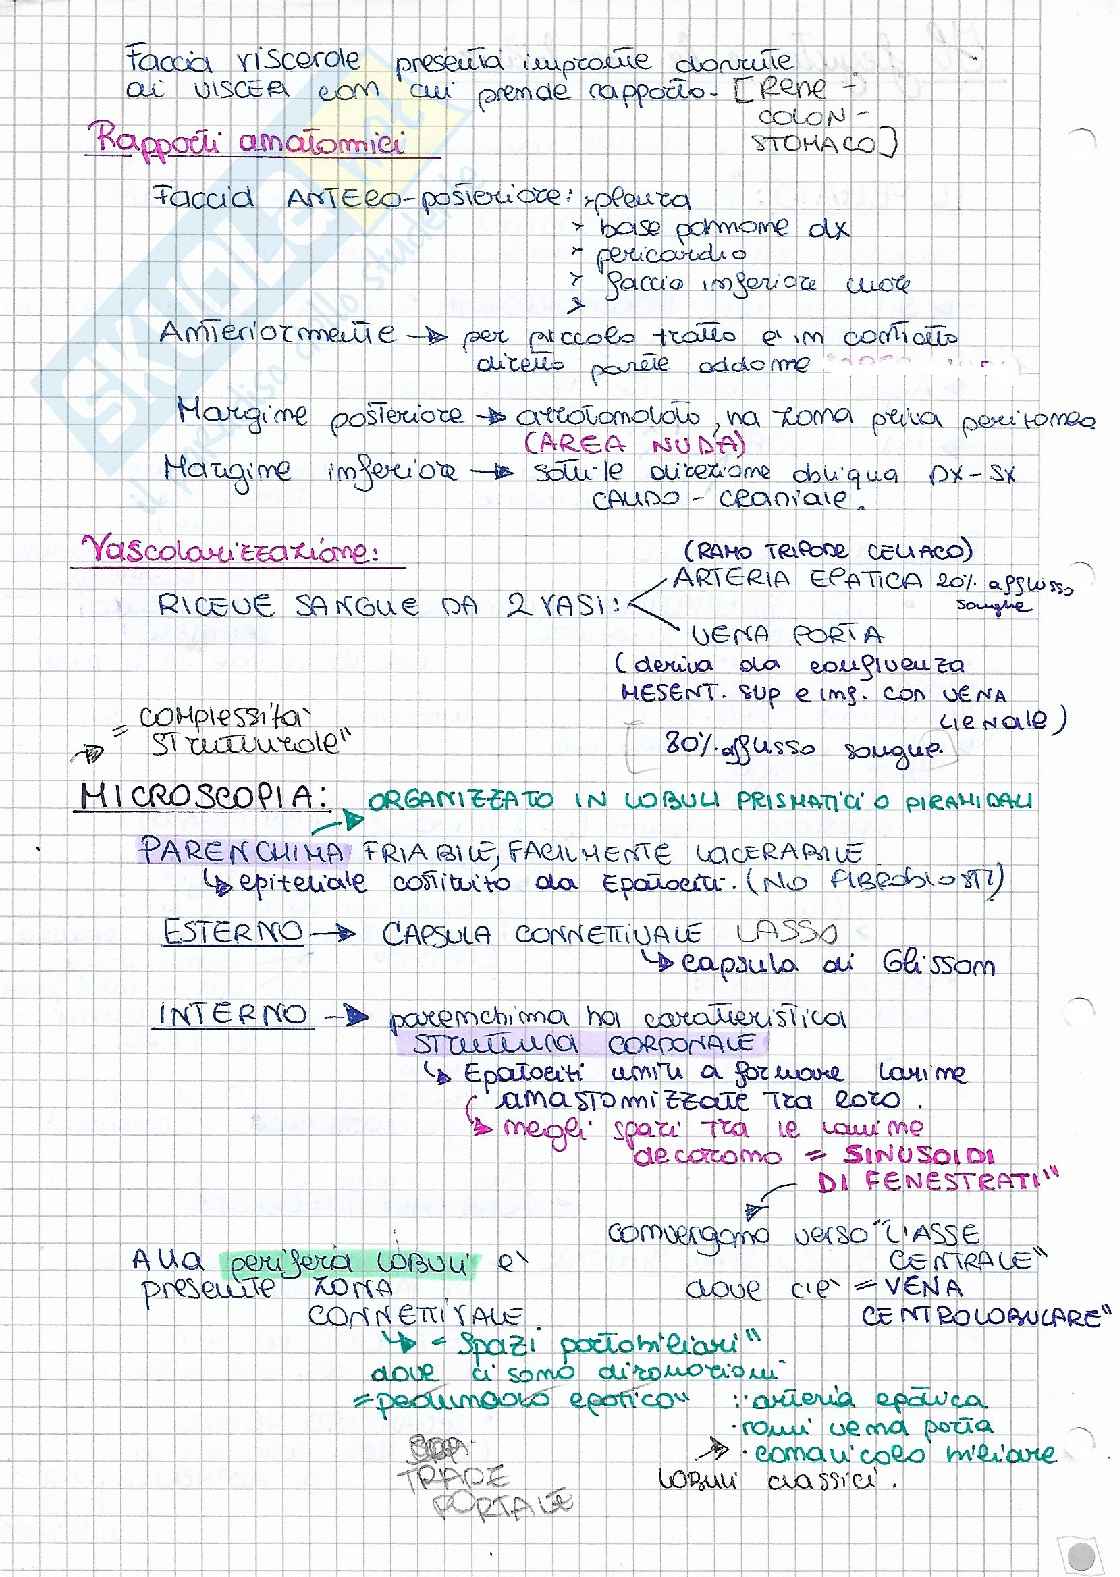 Faccia viscerale presenta impronte dovute
ai VISCERI con cui prende rapporto. [Rene -
COLON -
STOMACO]
Rapporti anatomici
Faccia ANTERO-posteriore: > pleura
> base polmone dx
> pericardio
> faccia inferiore cuore
>
Anteriormente → per piccolo tratto è in contatto
diretto parete addome
Margine posteriore → arrotondato, ha zona priva peritoneo
(AREA NUDA)
Margine inferiore → sottile direzione obliqua DX-SX
CAUDO - craniale.
Vascolarizzazione:
(RAMO TRIPODE CELIACO)
RICEVE SANGUE DA 2 VASI: ARTERIA EPATICA 20% afflusso
sangue
VENA PORTA
(deriva da confluenza
MESENT. sup e inf. con VENA
LIENALE)
80% afflusso sangue.
"complessità
strutturale"
MICROSCOPIA: ORGANIZZATO IN LOBULI PRISMATICI O PIRAMIDALI
PARENCHIMA FRIABILE, FACILMENTE LACERABILE
↳ epiteliale costituito da Epatociti. (NO FIBROBLASTI)
ESTERNO → CAPSULA CONNETTIVALE LASSO
↳ capsula di Glisson
INTERNO → parenchima ha caratteristica
STRUTTURA CORDONALE
↳ Epatociti uniti a formare lamine
anastomizzate tra loro.
↳ negli spazi tra le lamine
decorono "SINUSOIDI
DI FENESTRATI"
convergono verso "L'ASSE
CENTRALE"
dove c'è "VENA
CENTROLOBULARE"
Alla periferia LOBULI è
presente ZONA
CONNETTIVALE.
↳ "Spazi portobiliari"
dove ci sono diramazioni
"peduncolo epatico" : · arteria epatica
· rami vena porta
→ · canalicolo biliare
TRADE
PORTALE
LOBULI classici.